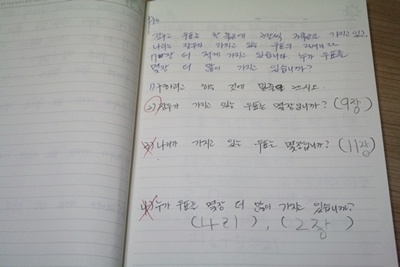 가지고 있고,
나리는 장우가 가지고 있는 우표의
장 더 적게 가지고 있습니다. 누가 우표를
몇장 더 많이 가지고 있습니까?
1) 구하려고 하는 것에 밑줄 으시오.
2) 장우가 가지고 있는 우표는 몇장입니까? (9장)
3) 나리가 가지고 있는 우표는 몇장입니까? (11장)
4) 누가 우표를 몇장 더 많이 가지고 있습니까?
(나리), (2장)